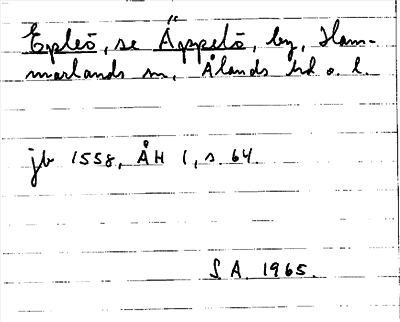 Epleö, se Äppelö, by, Ham-
marlands sn, Ålands hd o. l.
jb 1558, ÅH 1, s. 64.
S A. 1965.